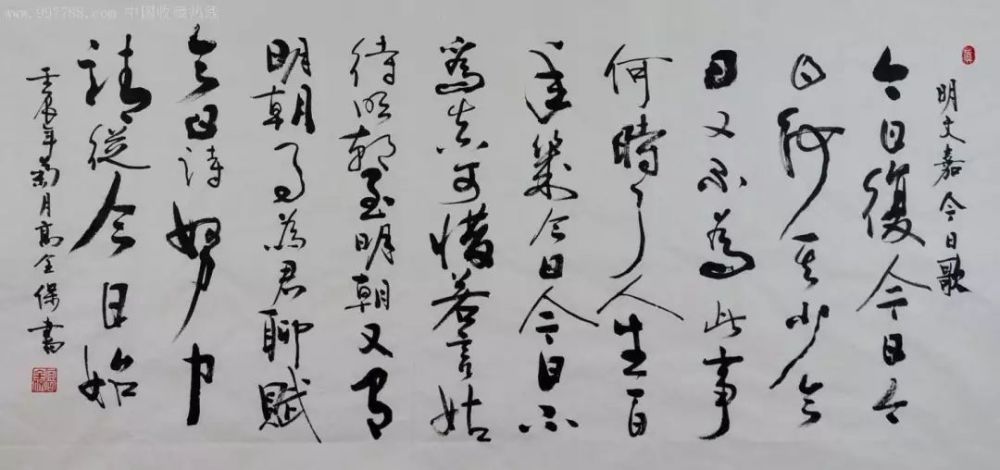 www.997788.com 中国收藏热线
明文嘉今日歌
今日復今日今
日何其少今
日又不為此事
何時了人生百
年幾今日今日不
為真可惜若言姑
待明朝至明朝又有
明朝事為君聊賦
今日詩努力
請從今日始
壬寅年菊月高全保書